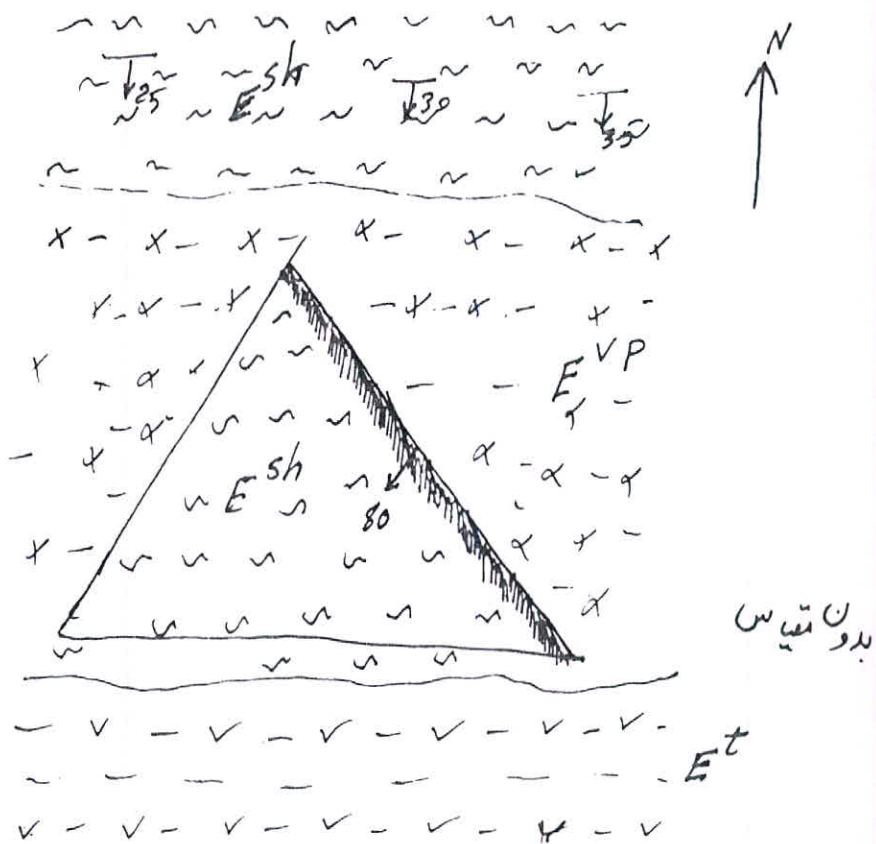 N
E^sh
25
30
35
E^vp
E^sh
80
بدون مقیاس
E^t